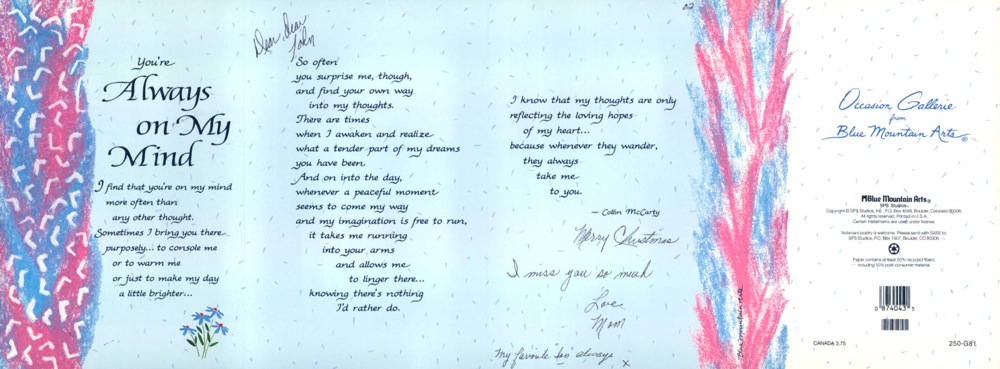 You're
Always
on My
Mind
I find that you're on my mind
more often than
any other thought.
Sometimes I bring you there
purposely... to console me
or to warm me
or just to make my day
a little brighter...
Dear, Dear
John
So often
you surprise me, though,
and find your own way
into my thoughts.
There are times
when I awaken and realize
what a tender part of my dreams
you have been.
And on into the day,
whenever a peaceful moment
seems to come my way
and my imagination is free to run,
it takes me running
into your arms
and allows me
to linger there...
knowing there's nothing
I'd rather do.
I know that my thoughts are only
reflecting the loving hopes
of my heart...
because whenever they wander,
they always
take me
to you.
— Collin McCarty
Merry Christmas
I miss you so much
Love
Mom
My favorite always
x
02
Blue Mountain Arts
Occasion Gallerie
from
Blue Mountain Arts®
Blue Mountain Arts®
SPS Studios
All rights reserved. Printed in U.S.A.
Certain trademarks are used under license.
SPS Studios, P.O. Box 1007, Boulder, CO 80306
Paper contains at least 50% recycled fibers,
including 10% post consumer material.
0 874043 5
CANADA 3.75
250-G81